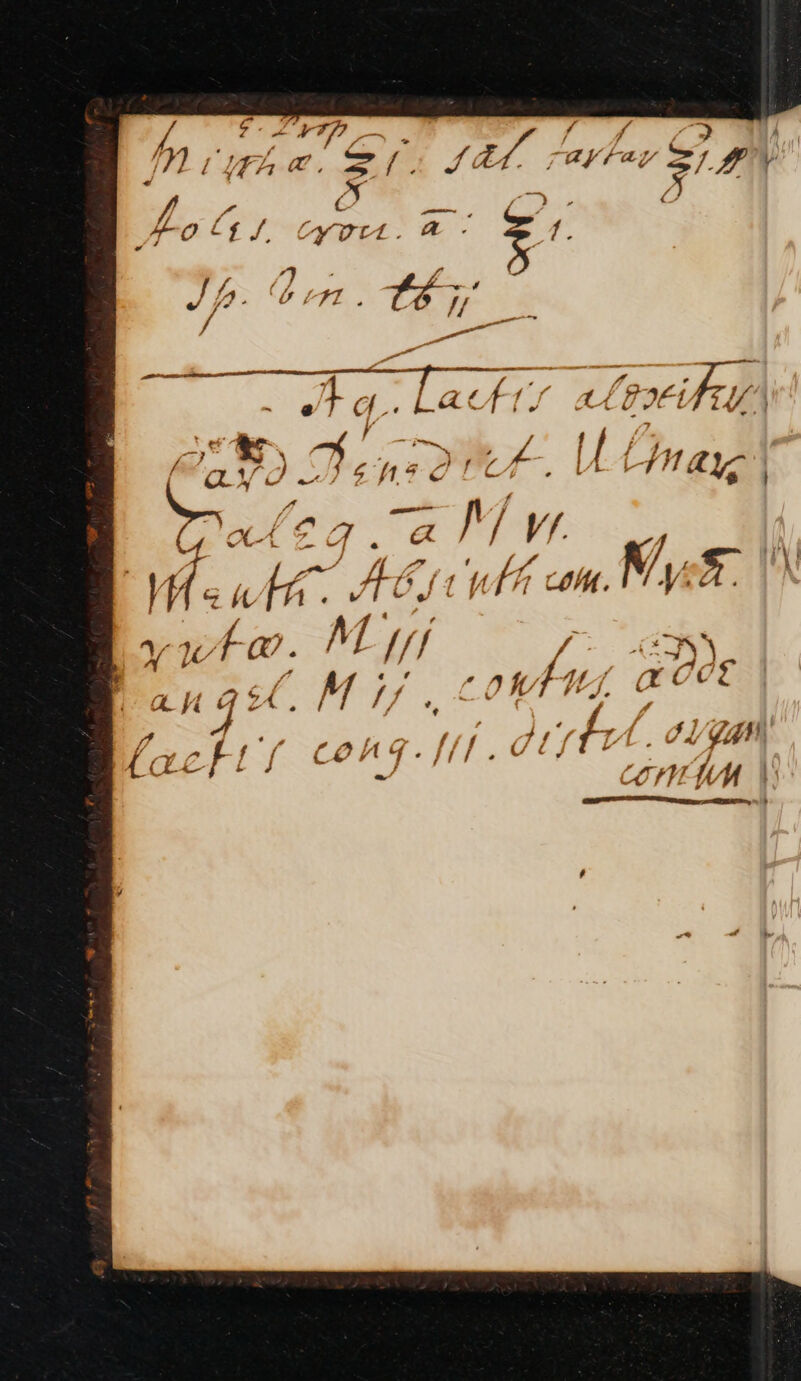 Myrrhæ. ʒi. Sal. tartar ʒi.
foliis. ā: ʒi.
Sp. Vin. ℔ij
Aq. Lactis alexiter
Card Benedict. Ulmar
Galeg. ā M vi.
Menth. Absinth com. M v. &
rutæ. M iij
angel. M ij. contus adde
lactis cong. iij. distil. organ
comūm